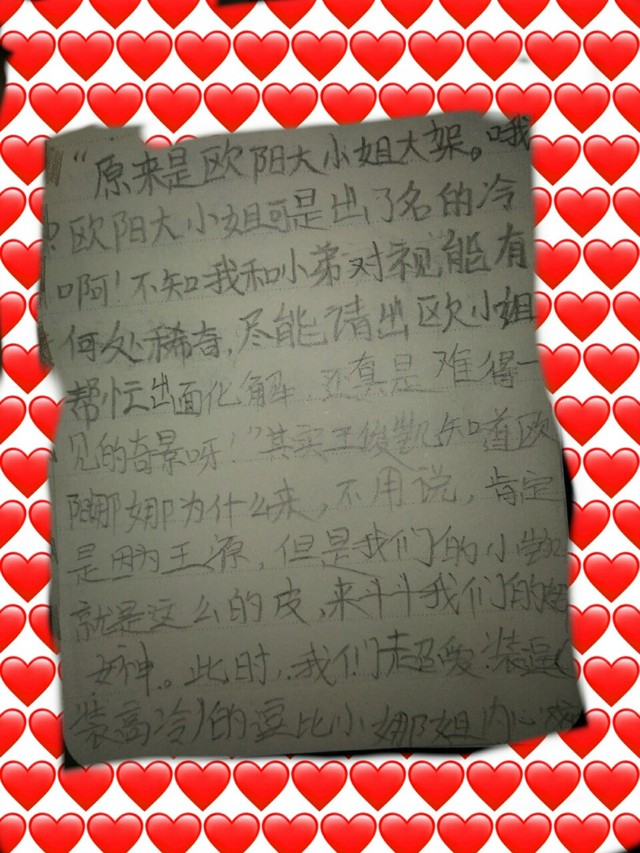 “原来是欧阳大小姐大架。哦
？欧阳大小姐可是出了名的冷
啊！不知我和小弟对视能有
何处稀奇，尽能请出欧小姐
帮忙出面化解，还真是难得一
见的奇景呀！”其实王俊凯知道欧
阳娜娜为什么来，不用说，肯定
是因为王源，但是我们的小
就是这么的皮，来斗斗我们的
女神。此时，我们超爱装逼（
装高冷）的逗比小娜姐内心